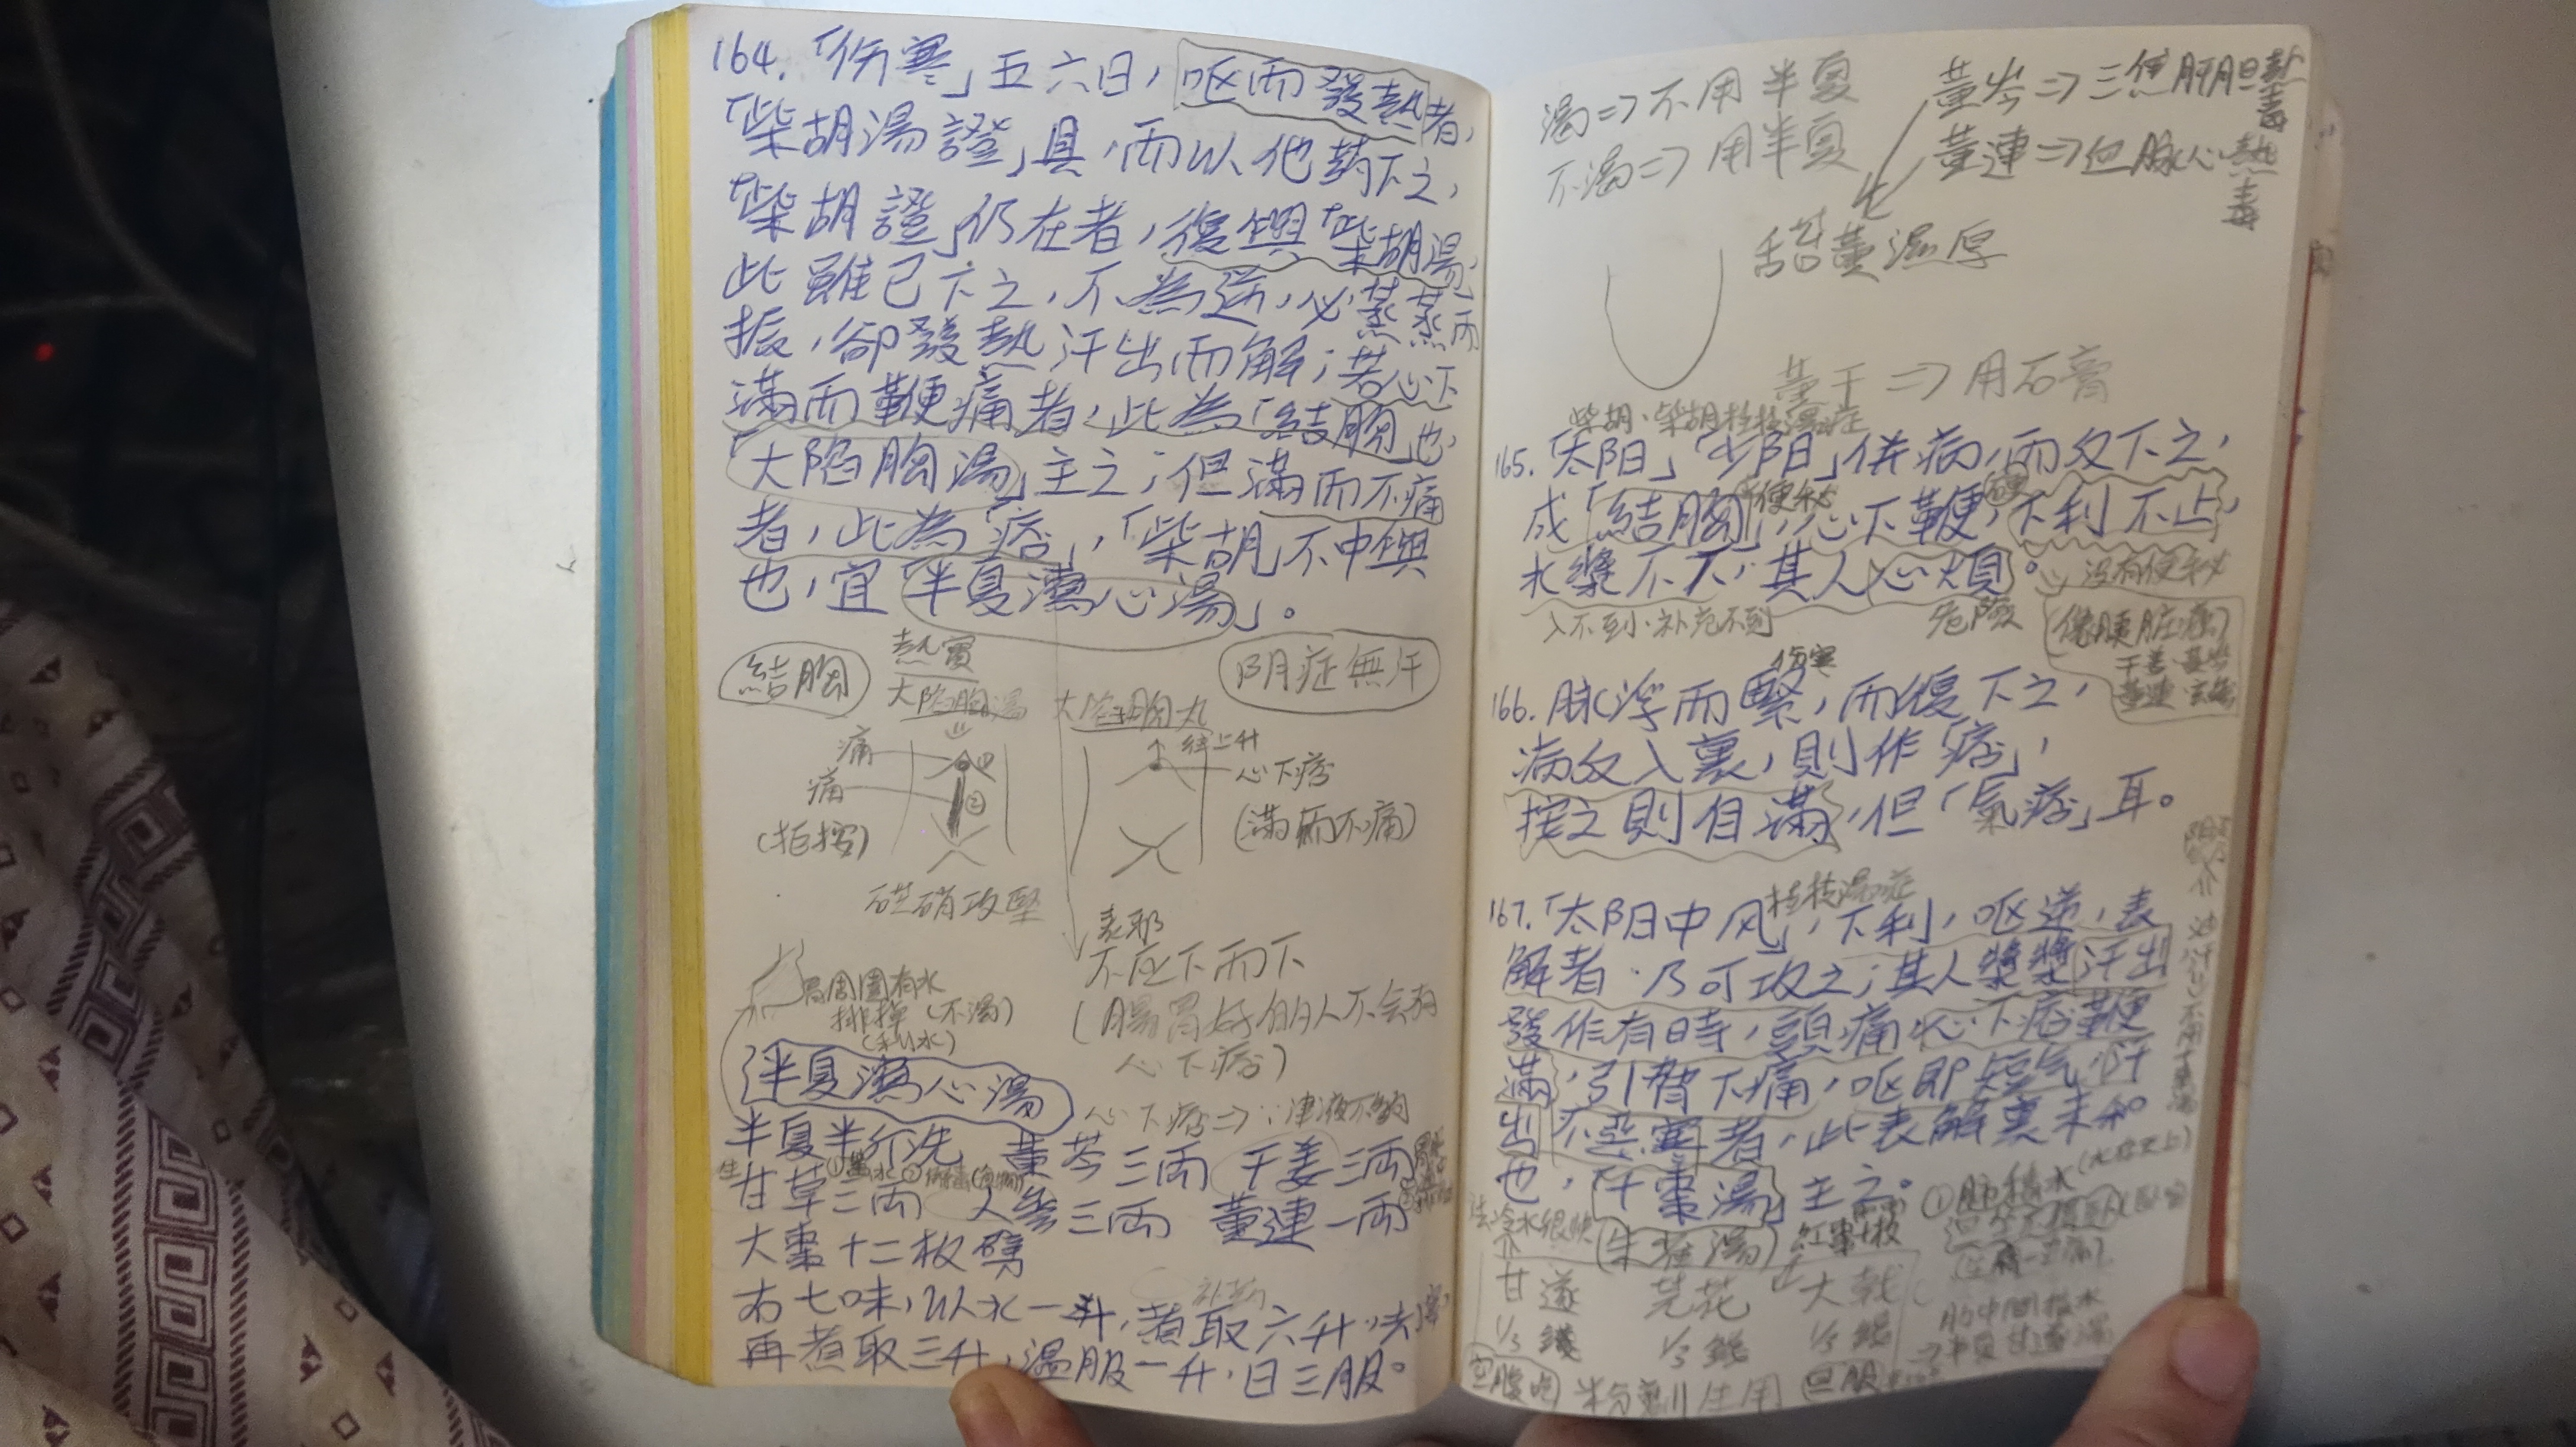 164.「伤寒」五六日，呕而發熱者，
「柴胡湯證」具，而以他药下之，
「柴胡證」仍在者，復與「柴胡湯」
此雖已下之，不為逆，必蒸蒸而
振，卻發熱汗出而解；若心下
滿而鞕痛者，此為「結胸」也，
「大陷胸湯」主之；但滿而不痛
者，此為「痞」，「柴胡」不中與
也，宜「半夏瀉心湯」。
結胸
熱實
大陷胸湯
痛
痛
(拒按)
硝攻堅
大陷胸丸
往上升
心下痞
(滿而不痛)
阴症無汗
表邪
不应下而下
(腸胃好的人不会有
心下痞)
胃周圍有水
排掉(不渴)
(利水)
半夏瀉心湯
心下痞⇒∵津液不夠
半夏半斤洗 黃芩三兩 干姜三兩
甘草三兩 人參三兩 黃連一兩
大棗十二枚劈
右七味，以水一斗，煮取六升，去
再煮取三升，溫服一升，日三服。
渴⇒不用半夏
不渴⇒用半夏
黃岑⇒三焦肝胆熱毒
黃連⇒血脉心熱毒
舌苔黃濕厚
黃干⇒用石膏
柴胡、柴胡桂枝湯症
165.「太阳」「少阳」併病，而反下之，
成「結胸」，心下鞕，下利不止，
便秘
硬
水漿不下，其人心煩。
沒有便秘
入不到、补充不到
危險
(像胰脏癌)
伤寒
166. 脉浮而緊，而復下之，
病反入裏，則作「痞」，
按之則自滿，但「氣痞」耳。
桂枝湯症
167.「太阳中风」，下利，呕逆，表
解者，乃可攻之；其人漿漿汗出
發作有時，頭痛，心下痞鞕
滿，引脅下痛，呕即短气，汗
出不恶寒者，此表解裏未和
也，「十棗湯」主之。
紅棗十枚
甘遂 芫花 大戟
1/3錢 1/3錢 1/3錢